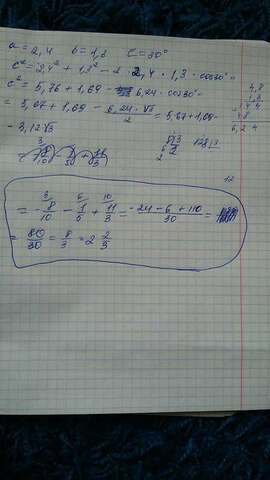 a = 2,4 b = 1,3 C = 30°
c² = 2,4² + 1,3² - 2 · 2,4 · 1,3 · cos30° =
c² = 5,76 + 1,69 - 6,24 · cos30° =
= 5,67 + 1,69 - 6,24 · √3 / 2 = 5,67 + 1,69 -
- 3,12√3
4,8
1,3
144
48
6,24
12
= - 8/10 - 1/5 + 11/3 = -24 - 6 + 110 / 30 =
= 80/30 = 8/3 = 2 2/3